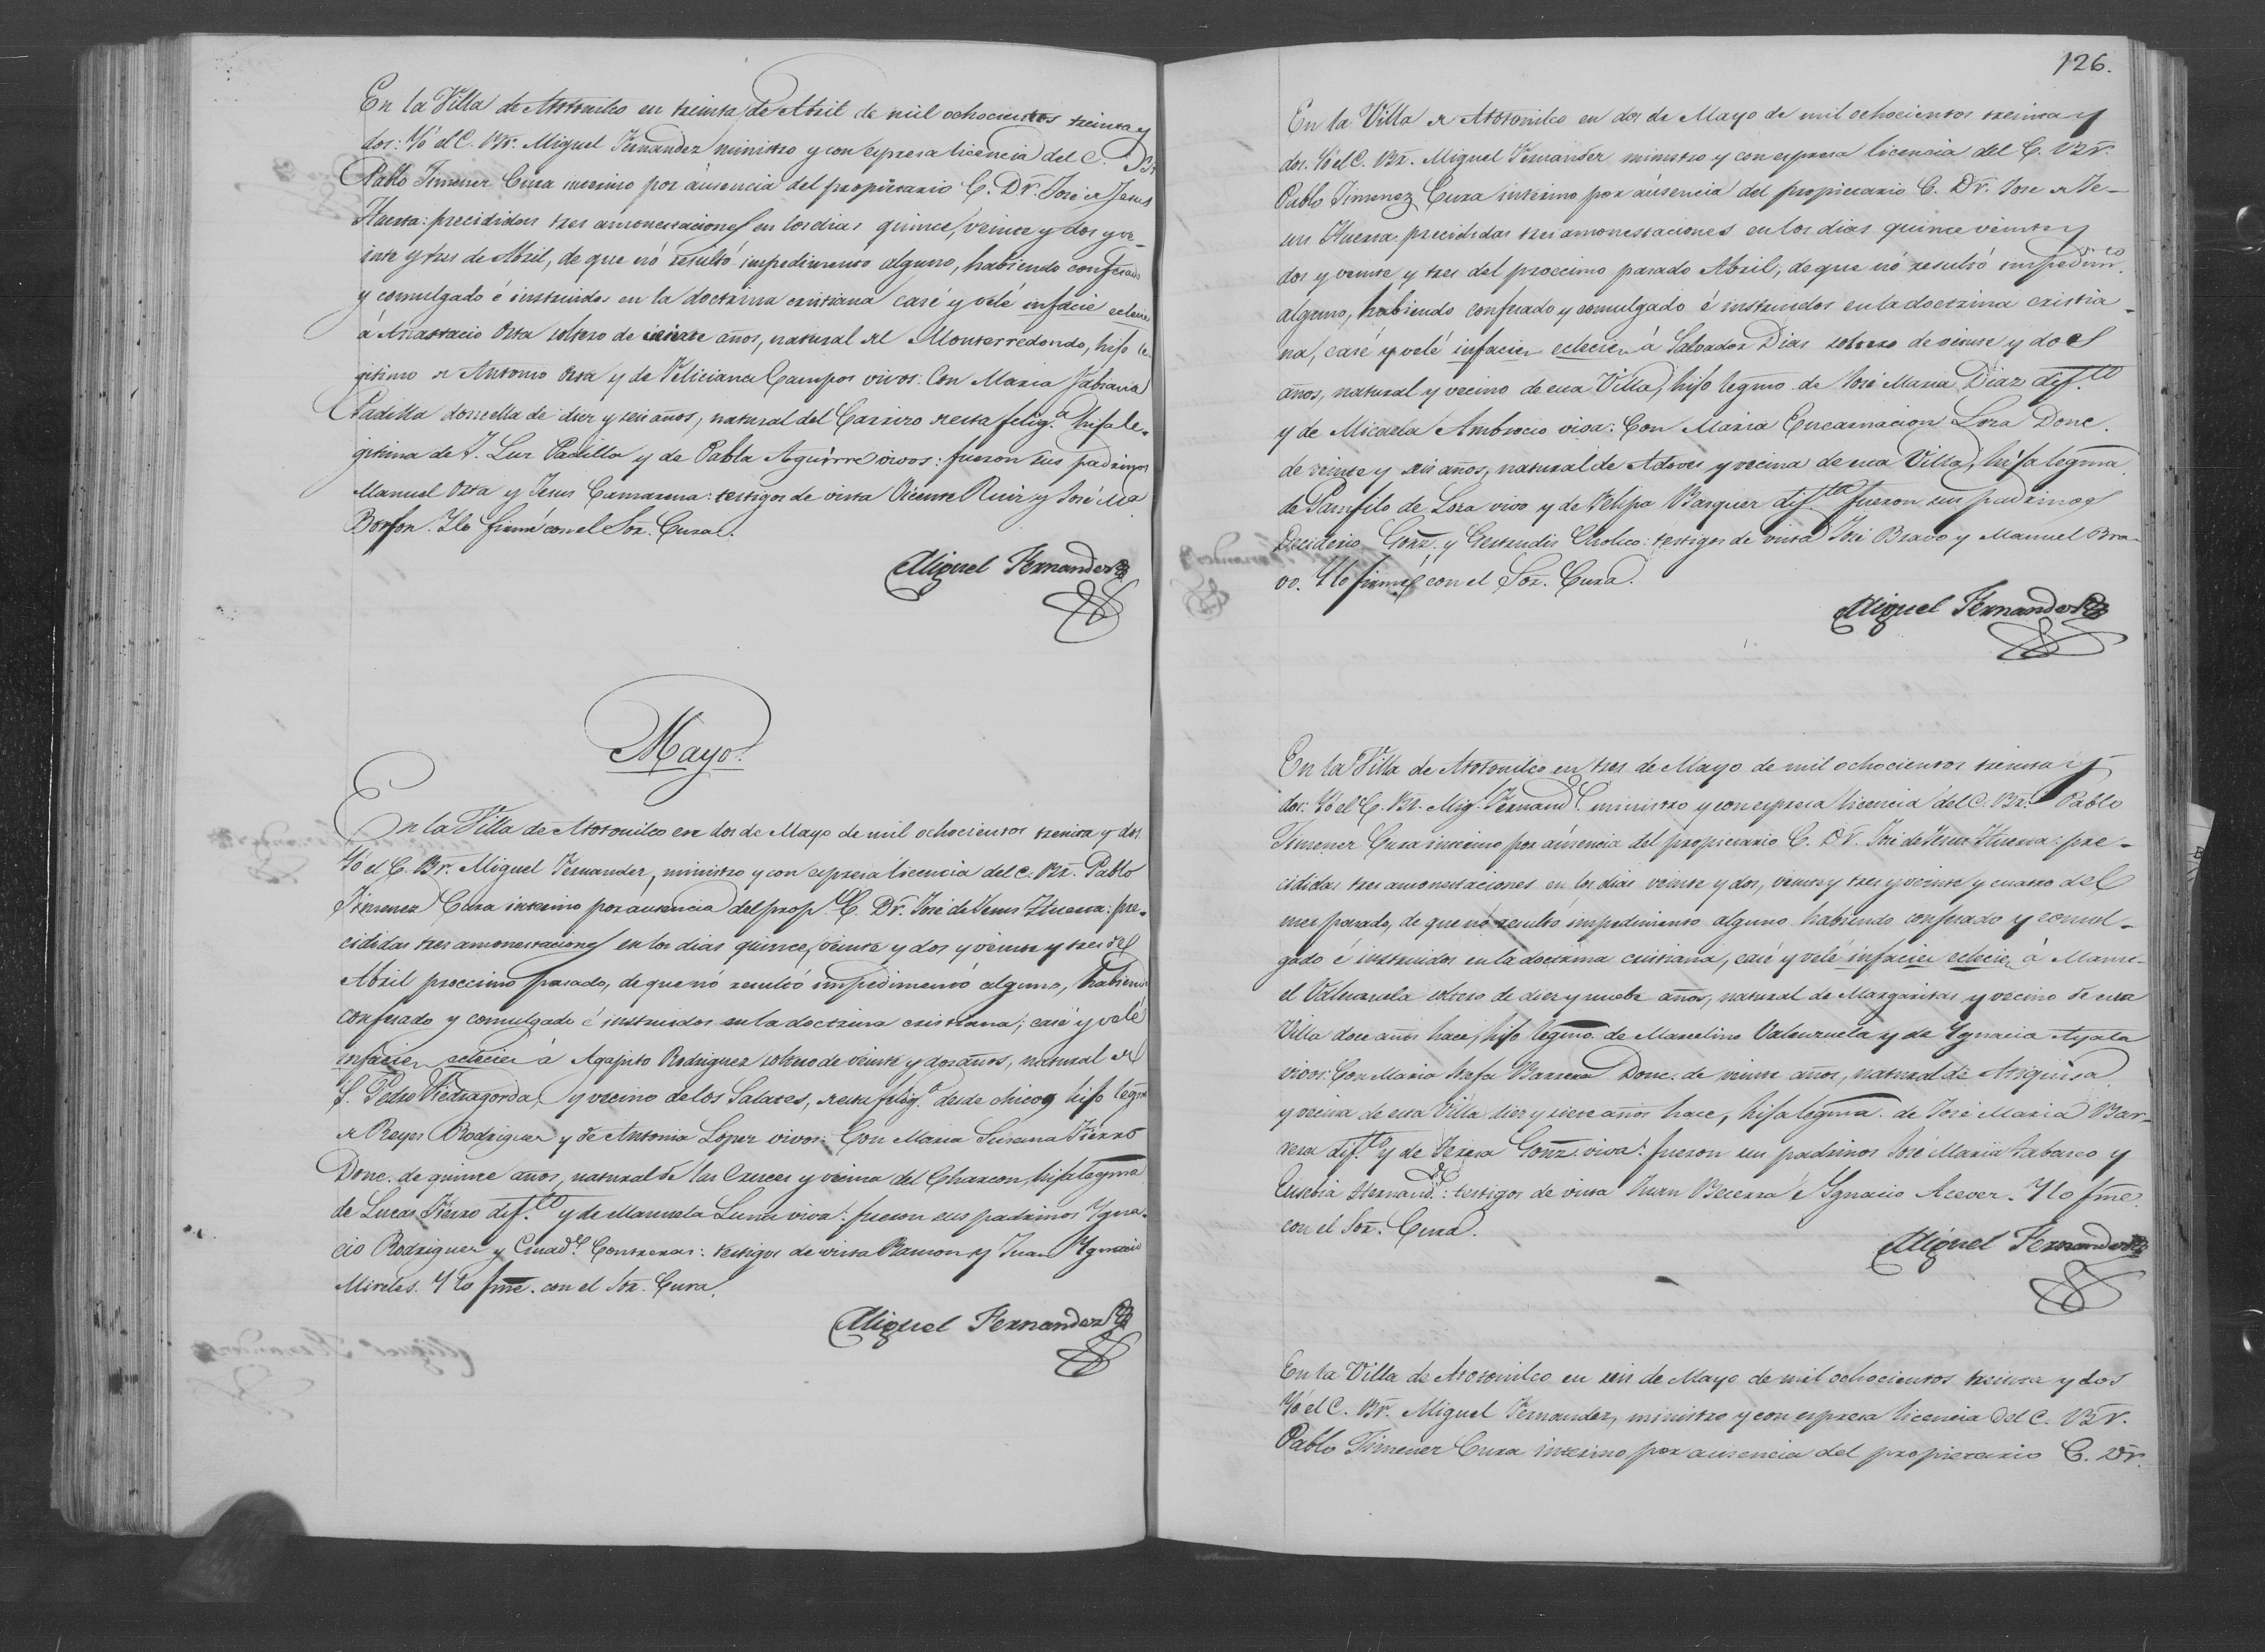 En la Villa de Atotonilco en treinta de Abril de mil ochocientos treinta y
dos: Yó el C. Br. Miguel Fernandez ministro y con espresa licencia del C. Br
Pablo Jimenez Cura interino por áusencia del propietario C. Dr. José de Jesus
Huerta: precididas tres amonestaciones en los dias quince, veinte y dos y ve-
inte y tres de Abril, de que nó resultó impedimento alguno, habiendo confesado
y comulgado é instruidos en la doctrina cristiana casé y velé infacie eclecie
á Anastacio Orta soltero de años, natural del Monterredondo, hijo le-
gitimo de Antonio Orta y de Feliciana Campos vivos: Con Maria Fabiana
Padilla doncella de diez y seis años, natural del Carrizo desta felig.a hija le-
gitima de J. Luz Padilla y de Pabla Aguirre vivos: fueron sus padrinos
Manuel Orta y Jesus Camarena: testigos de vista Vicente Ruiz y José Ma
Borjon. Y lo firmé con el Sor. Cura.
Miguel Fernandez
Mayo.
En la Villa de Atotonilco en dos de Mayo de mil ochocientos treinta y dos
Yó el C. Br. Miguel Fernandez, ministro y con espresa licencia del C. Br. Pablo
Jimenez Cura interino por ausencia del prop.o C. Dr. José de Jesus Huerta: pre-
cididas tres amonestaciones en los dias quince, veinte y dos y veinte y tres del
Abril procsimo pasado, de que nó resultó impedimento alguno, habiendo
confesado y comulgado é instruidos en la doctrina cristiana; casé y velé
infacie eclecie á Agapito Rodriguez soltero de veinte y dos años, natural de
S. Pedro Piedragorda, y vecino de los Salazes, desta felig.a desde chico, hijo legmo
de Reyes Rodriguez y de Antonia Lopez vivos: Con Maria Susana Fierro
Donc. de quince años, natural de las Cruces y vecina del Charcon, hija legma
de Lucas Fierro dif.to y de Manuela Luna viva: fueron sus padrinos Ygna-
cio Rodriguez y Contreras: testigos de vista Ramon y Juan Ygnacio
Mireles. Y lo fmé. con el Sor. Cura.
Miguel Fernandez
126.
En la Villa de Atotonilco en dos de Mayo de mil ochocientos treinta y
dos. Yó el C. Br. Miguel Fernandez ministro y con espresa licencia del C. Br.
Pablo Jimenez Cura interino por áusencia del propietario C. Dr. Jose de Je-
sus Huerta: precididas tres amonestaciones en los dias quince veinte y
dos y veinte y tres del procsimo pasado Abril; de que nó resultó impedim.to
alguno, habiendo confesado y comulgado é instruidos en la doctrina cristia-
na, casé y velé infacie eclecie á Salvador Dias soltero de veinte y dos
años, natural y vecino de esa Villa, hijo legmo. de José Maria Diaz dif.to
y de Micaela Ambrocio viva: Con Maria Encarnacion Lora Donc.
de veinte y seis años, natural de Adoves y vecina de esa Villa, hija legma.
de Pamfilo de Lora vivo y de Felipa Basquez dif.ta fueron sus padrinos
Deciderio Gonz. y Gertrudis Orolico: testigos de vista José Bravo y Manuel Bra-
vo. Y lo firmé con el Sor. Cura.
Miguel Fernandez
En la Villa de Atotonilco en tres de Mayo de mil ochocientos treinta y
dos: Yó el C. Br. Mig.l Fernand.z ministro y con espresa licencia del C. Br. Pablo
Jimenez Cura interino por áusencia del propietario C. Dr. José de Jesus Huerta: pre-
cididas tres amonestaciones en los dias veinte y dos, veinte y tres y veinte y cuatro del
mes pasado, de que nó resultó impedimento alguno habiendo confesado y comul-
gado é instruidos en la doctrina cristiana, casé y velé infacie eclecie á Manu-
el Valenzuela soltero de diez y nuebe años, natural de Margaritas y vecino de esta
Villa doce años hace, hijo legmo. de Marcelino Valenzuela y de Ygnacia Ayala
vivos: Con Maria Barrera Donc. de veinte años, natural de
y vecina de esta Villa diez y siete años hace, hija legma. de José Maria Bar-
rera dif.to y de Teresa Gonz. viva: fueron sus padrinos José Maria y
Eusebia Hernand.z: testigos de vista Juan Becerra é Ygnacio Acever. Y lo fmé
con el Sor. Cura.
Miguel Fernandez
En la Villa de Atotonilco en seis de Mayo de mil ochocientos treinta y dos
Yó el C. Br. Miguel Fernandez, ministro y con espresa licencia del C. Br.
Pablo Jimenez Cura interino por ausencia del propietario C. Dr.